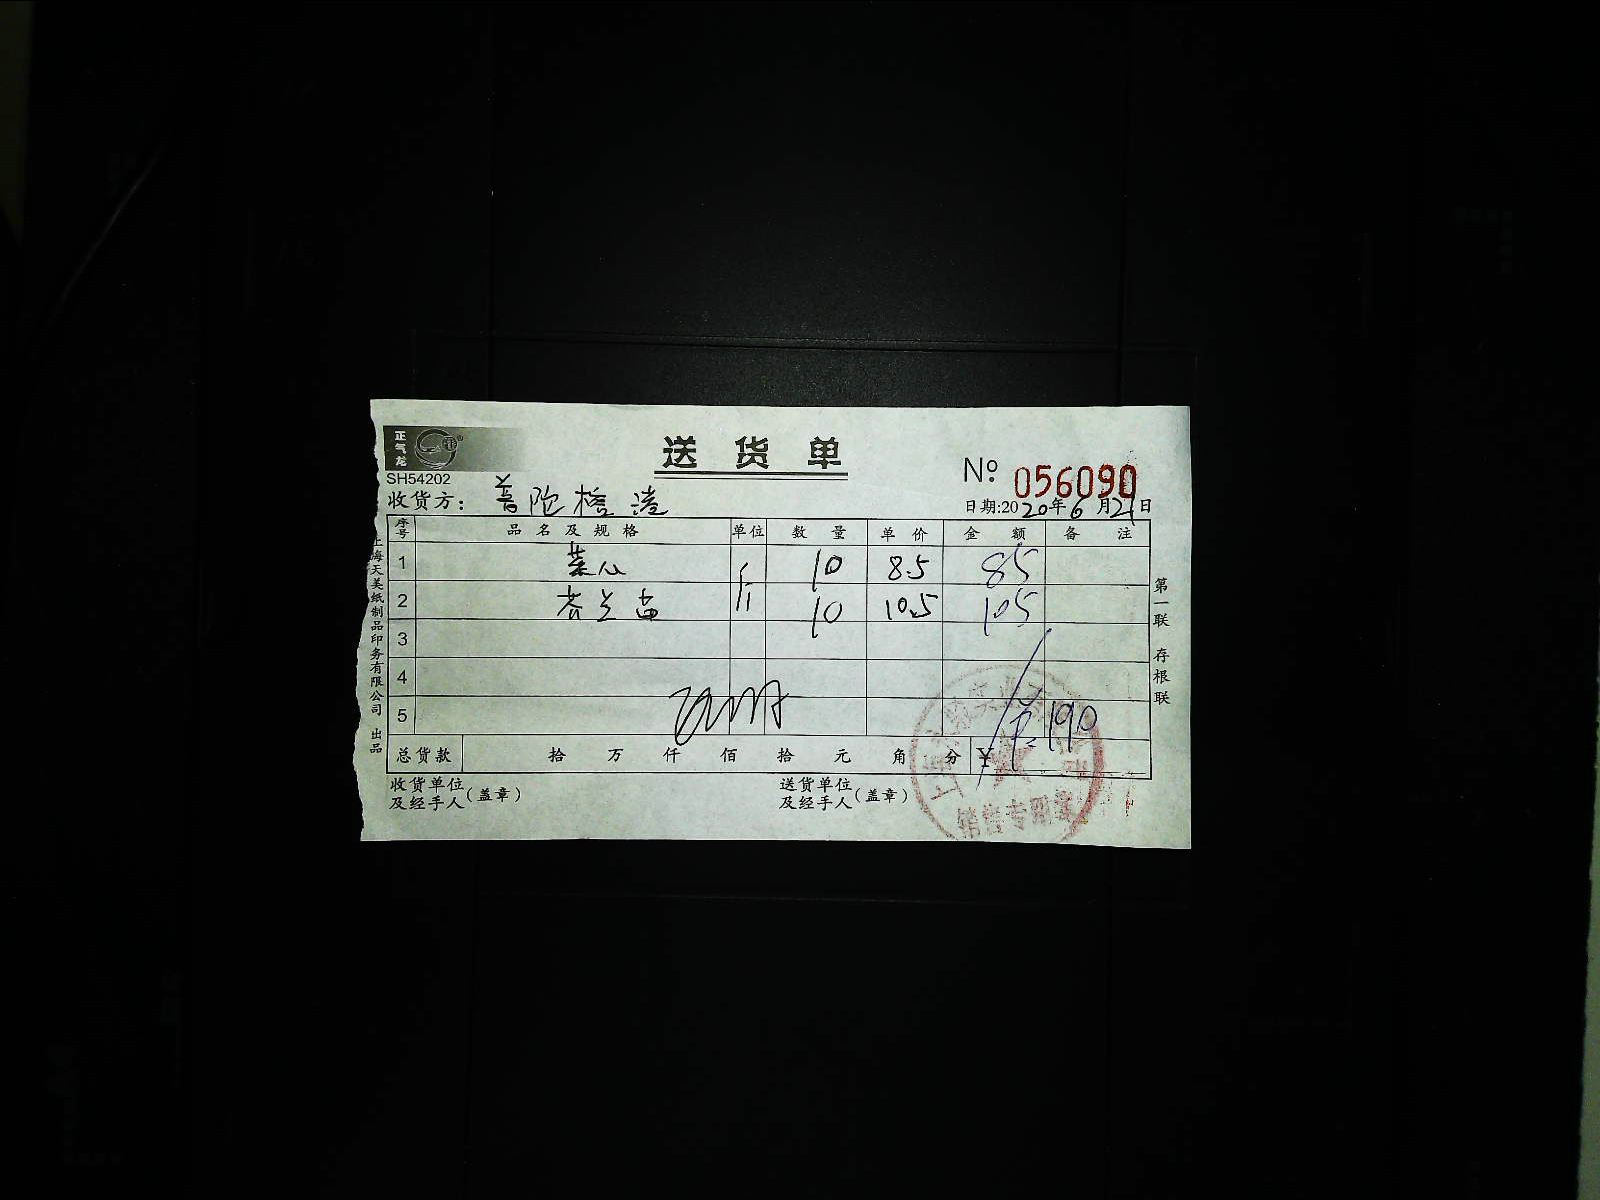 正气龙
SH54202
送货单
№ 056090
收货方：普陀
日期:2020年6月21日
序号 品名及规格 单位 数量 单价 金额 备注
1 菜心 斤 10 8.5 85
2 芥兰苗 斤 10 10.5 105
3
4
5
190
总货款 拾 万 仟 佰 拾 元 角 分 ¥
收货单位及经手人（盖章）
送货单位及经手人（盖章）
上海天美纸制品印务有限公司 出品
第一联 存根联
销售专用章